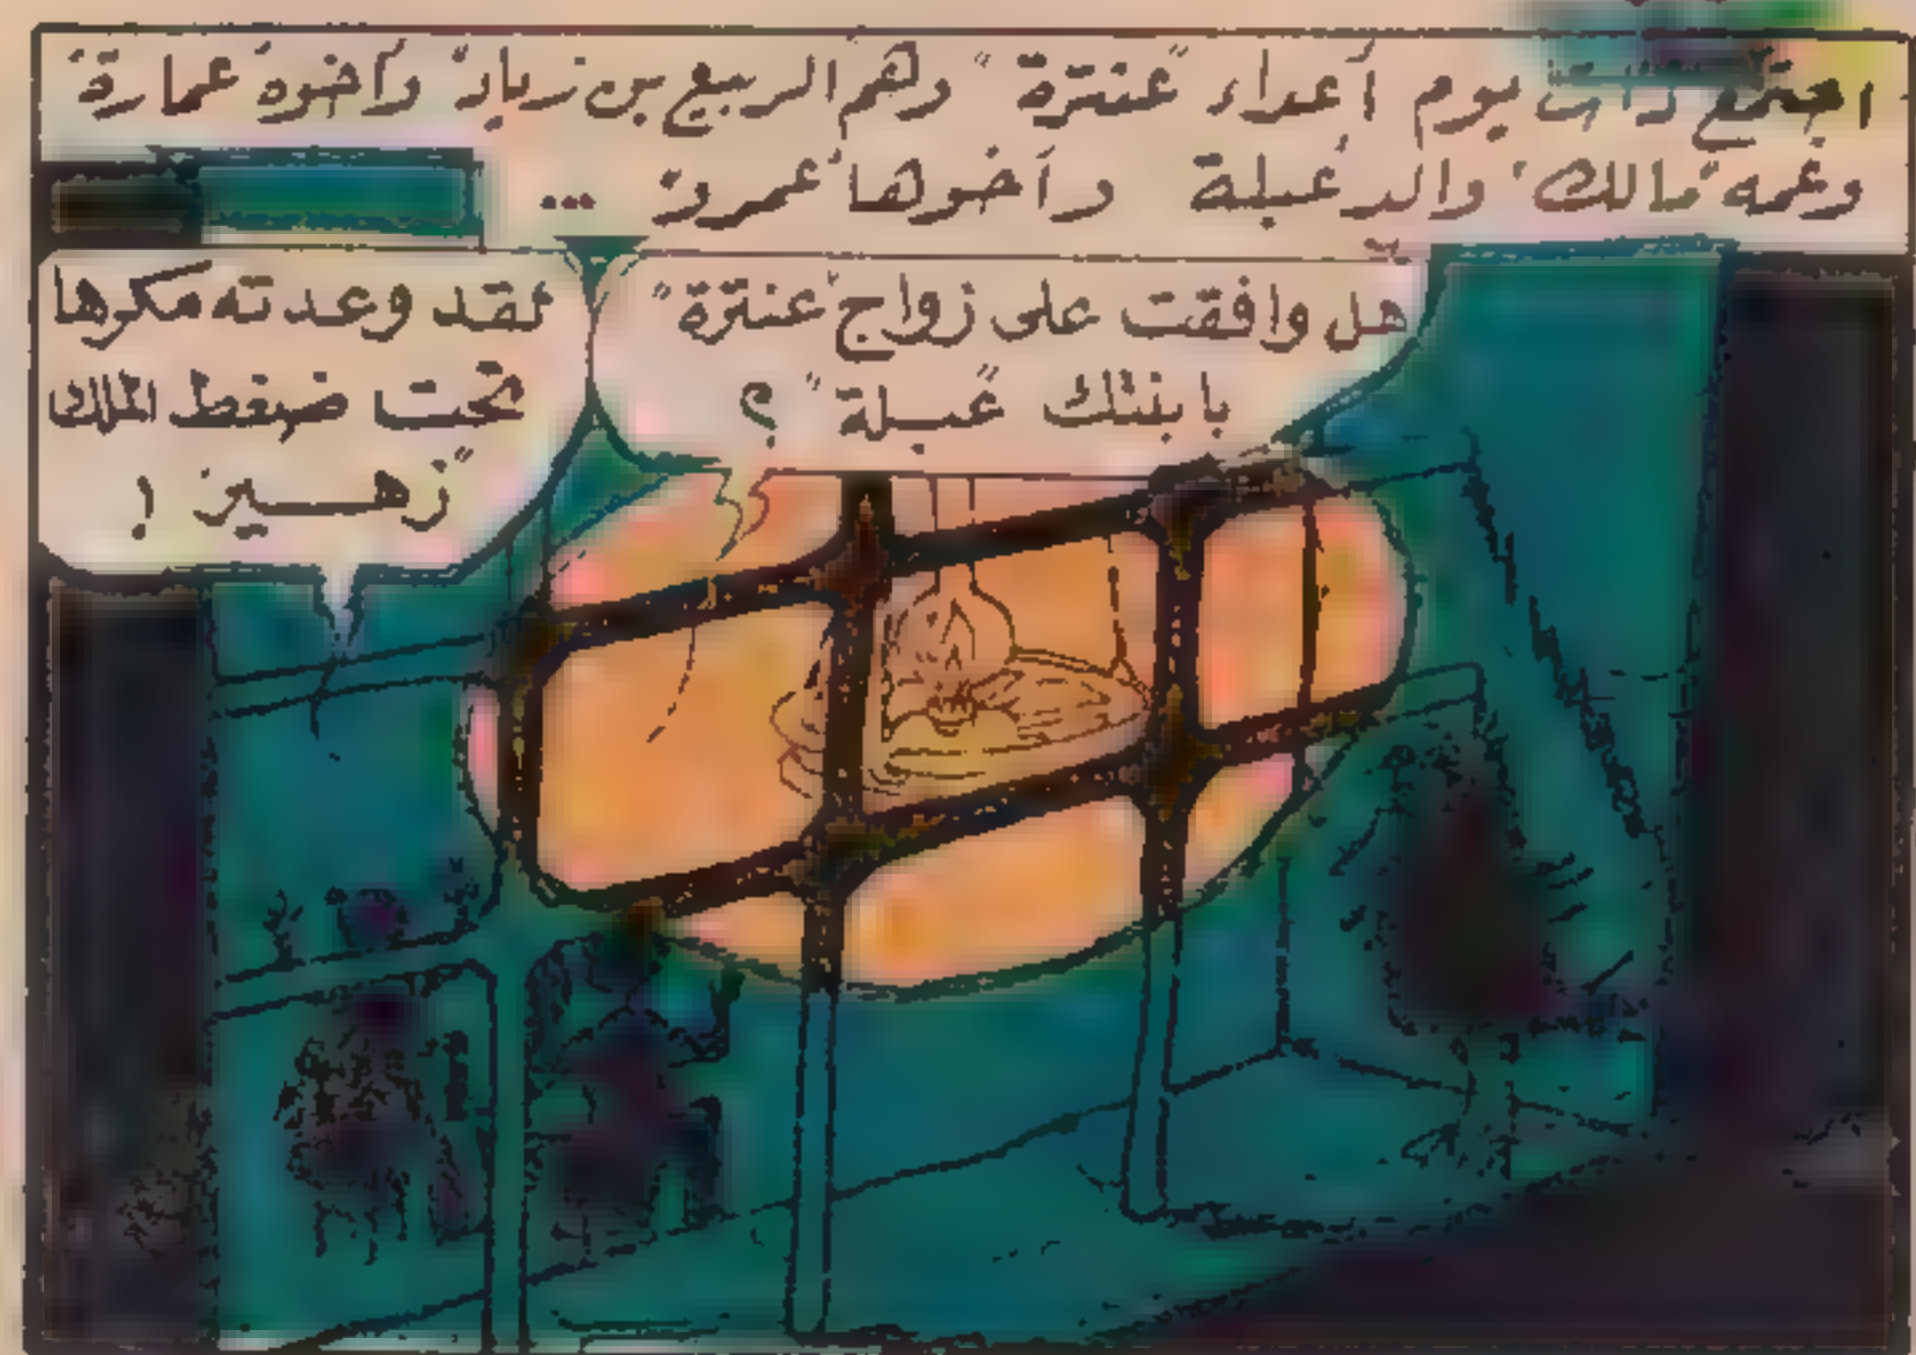 اجتمع ذات يوم أعداء "عنترة" وهم الربيع بن زياد" وأخوه "عمارة"
وعمه "مالك" والد "عبلة" وأخوها "عمرو" ...
هل وافقت على زواج "عنترة"
بابنتك "عبلة" ؟
لقد وعدته مكرها
تحت ضغط الملك
"زهير" !